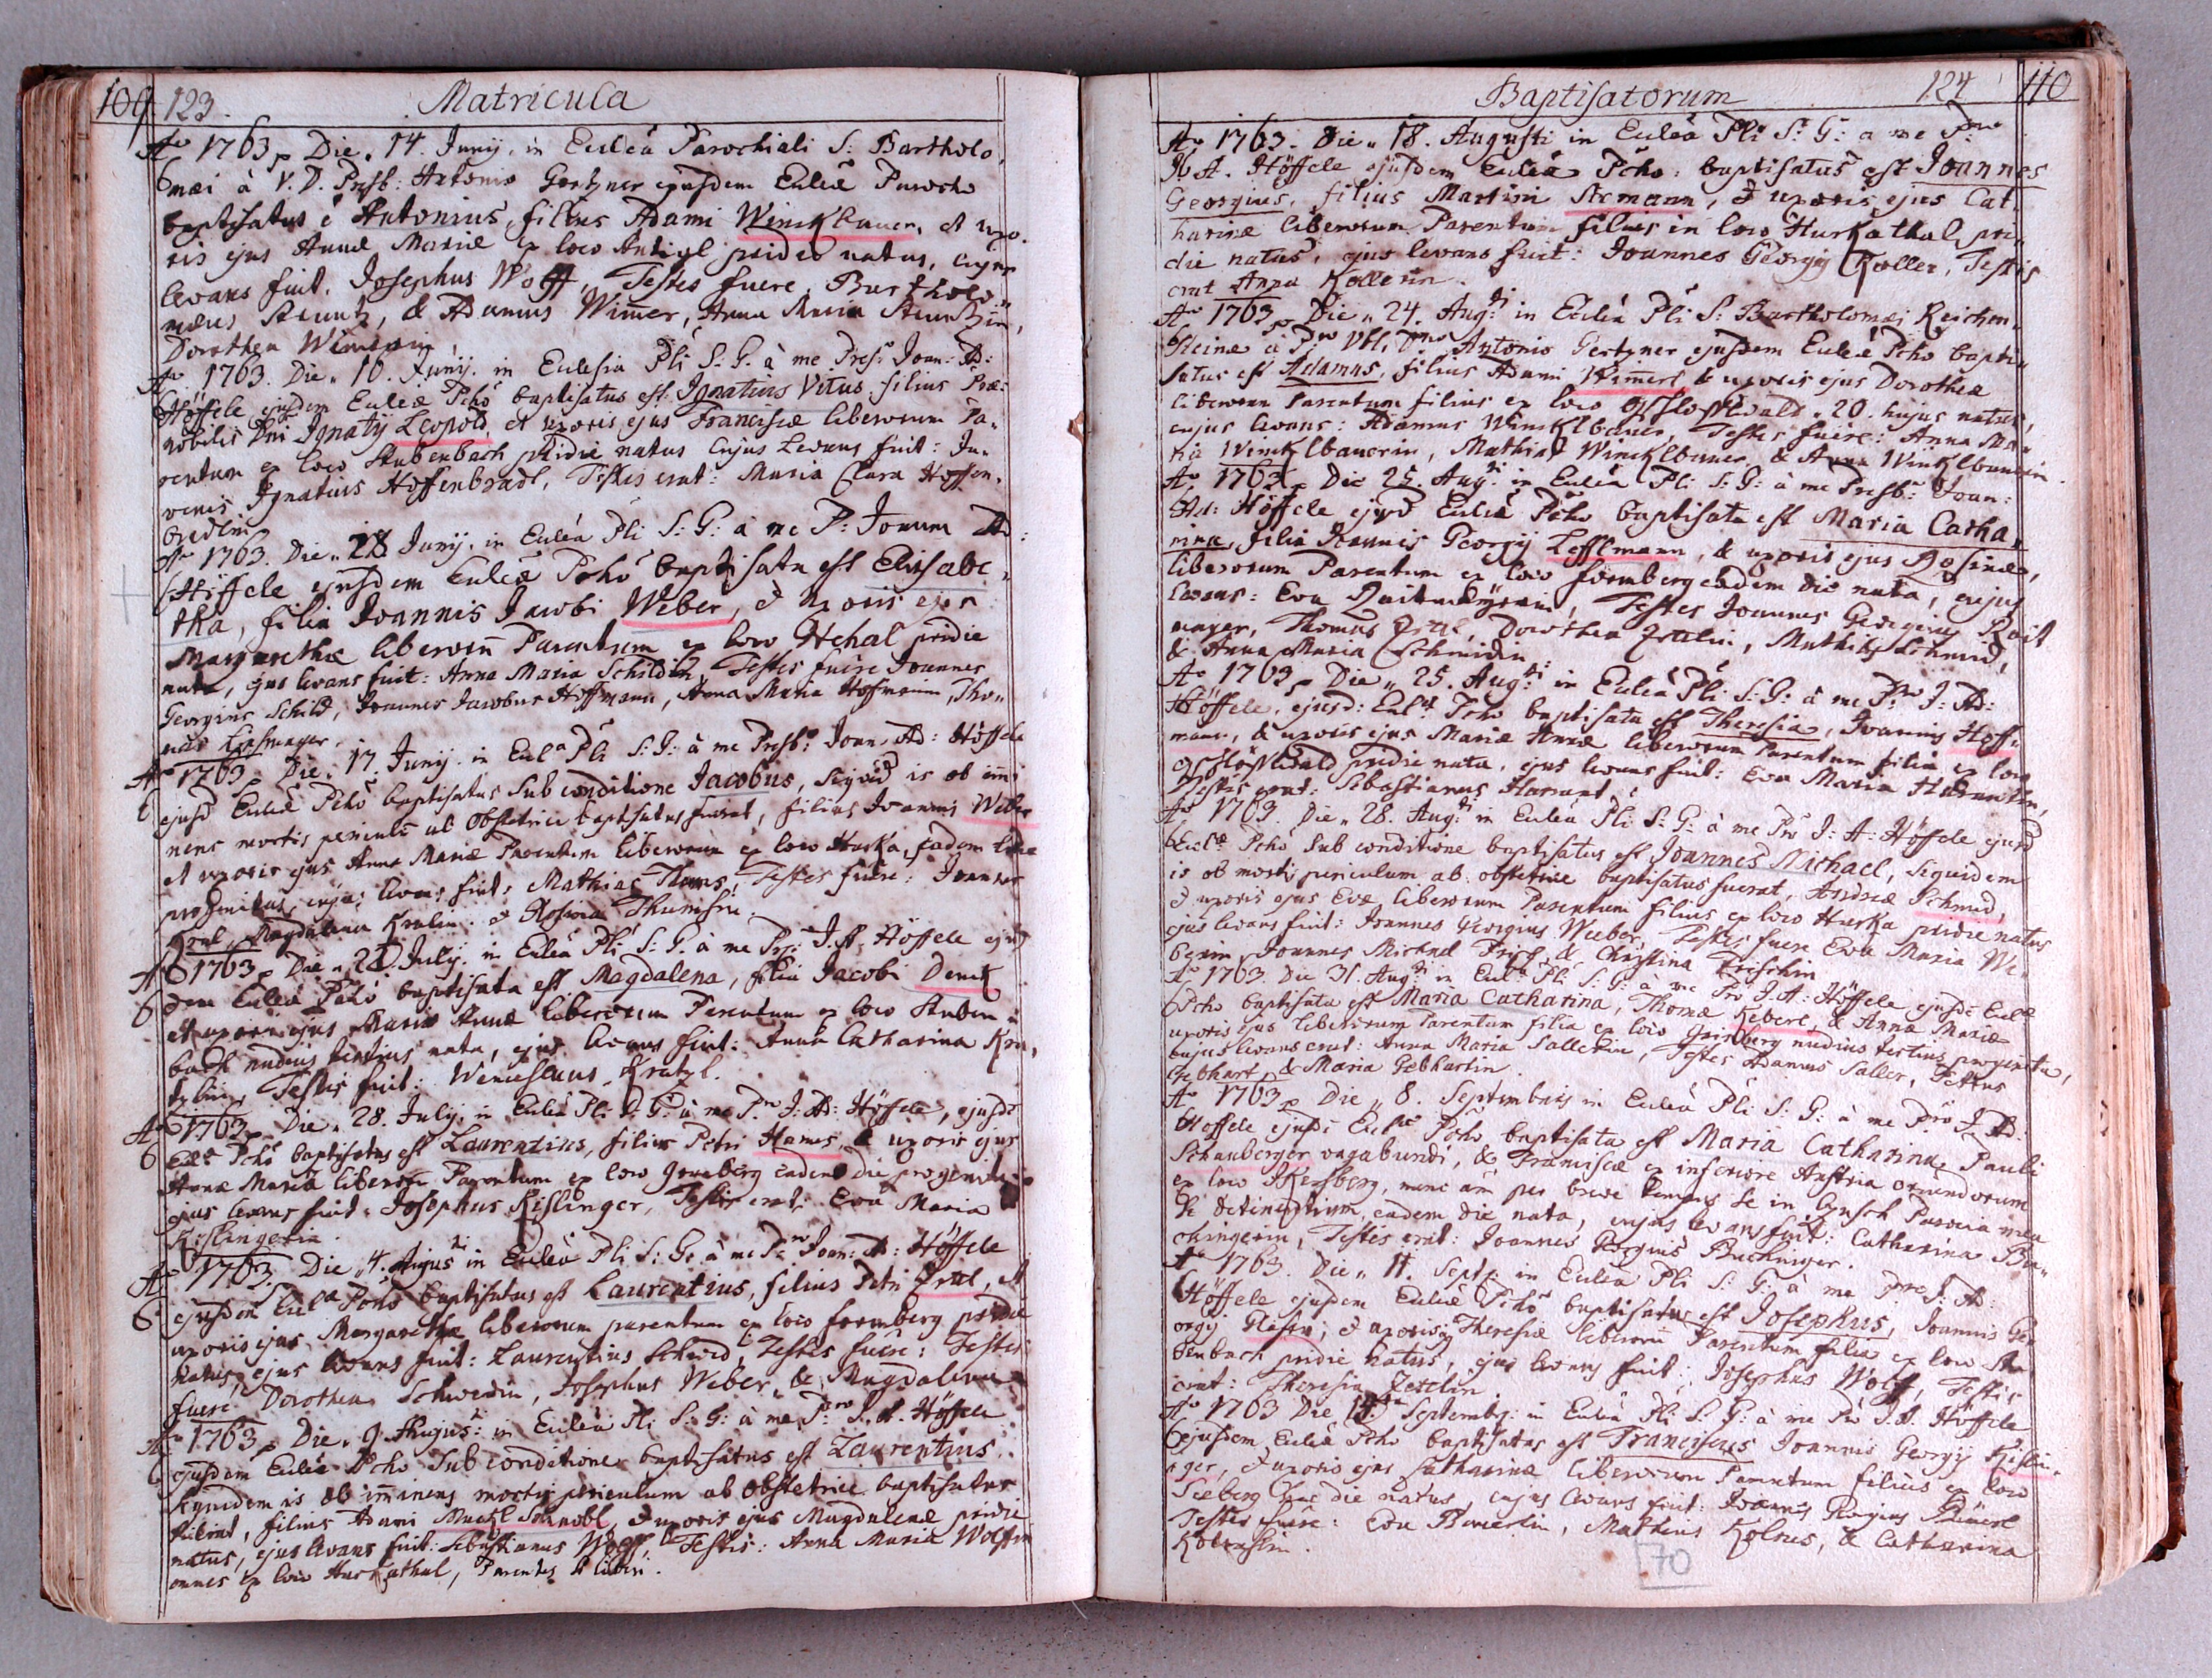 109 123. Matricula
Ao 1763 Die 14. Junij. in Eccleâ Parochiali S: Bartholo,
mæi à V. D. Presb: Antonio Gertzner ejusdem Eccleæ Parocho
baptisatus é Antonius, filius Adami Wincklbauer, et uxo.
ris ejus Annæ Mariæ ex loco pridie natus, cujus
levans fuit. Josephus Wolff, Testes fuere, Bartholo„
mæus Stuntz, & Adamus Wimer, Anna Maria Stuntzin,
Dorothea
Ao 1763. Die 10. Junij. in Ecclesia Pli S: G. à me Presb Joan: Ad:
Höffele ejusdem Eccleæ Pcho baptisatus est Ignatius Vitus filius Præ:
nobilis Dni Ignatij Leopold, et uxoris ejus Franciscæ liberorum Pa„
rentum ex loco Stubenbach pridie natus cujus Levans fuit: Ju„
venis Ignatius Hoffenbradl, Testis erat: Maria Clara Hoffen„
bredlin
Ao 1763. Die 28 Junij. in Eccleâ Pli S: G: à me P: Joanne Ad:
Höffele ejusdem Eccleæ Pcho baptisata est Elisabe„
tha, filia Joannis Jacobi Weber, & Uxoris ejus
Margarethæ liberorum Parentum ex loco Hehal pridie
nata, ejus levans fuit: Anna Maria Schildin, Testes fuere Joannes
Georgius Schild, Joannes Jacobus Hoffmann, Anna Maria Hoffmanin, Tho„
mas
Ao 1763. Die 17. Junij. in Ecla Pli S: G: à me Presb: Joan Ad: Höffele
ejusd Eccleæ Pcho baptisatus Sub conditione Jacobus, siquid is ob immi
nens mortis periculum ab Obstetrice baptisatus fuerat, filius Joannis Weber
et uxoris ejus Annæ Mariæ Parentum liberorum ex loco Hurka, eadem die
progenitus, cujus levans fuit: Mathias Thoms, Testes fuere: Joannes
Kral, Magdalena Kralin. & Rosina
Ao 1763 Die 21. July. in Eccleâ Pli S: G. à me J. A. Höffele ejus
dem Eccleæ Pcho baptisata est Magdalena, filia Jacobi Denck
et uxoris ejus Mariæ Annæ liberorum Parentum ex loco Stuben„
bach nudius tertius nata, ejus levans fuit: Anna Catharina Kra„
tzlin, Testis fuit: Wenceslaus Kratzl.
Ao 1763 Die 28. July. in Eccleâ Pli S: G: à me J: Ad: Höffele, ejusd
Eclæ Pcho baptisatus est Laurentius, filius Petri Hames, & uxoris ejus
Annæ Mariæ liberorum Parentum ex loco eadem die progenitus
ejus levans fuit: Josephus Kislinger, Testis erat: Eva Maria
Kislingerin.
Ao 1763. Die 4. Augus: in Eccleâ Pli S: G: à me Joan: A: Höffele
ejusdem Eccla Pcho baptisatus est Laurentius, filius Petri Zettl, et
uxoris ejus Margarethæ liberorum parentum ex loco formberg pridie
natus, ejus levans fuit: Laurentius Schmid, Testes fuere: Testes
fuere Dorothea Schmedin, Josephus Weber, & Magdalena
Ao 1763 Die 9 Augus: in Eccleâ Pli S: G: à me J. A. Höffele
ejusdem Eccleæ Pcho Sub conditione baptisatus est Laurentius
siquidem is ob imminens mortis periculum ab Obstetrice baptisatus
fuerat, filius Adami & uxoris ejus Magdalenæ pridie
natus, ejus levans fuit: Sebastianus Wolff, Testis: Anna Maria Wolffin
omnes ex loco Hurkathal, Parentes liberi.
Baptisatorum 124 110
Ao 1763. Die 18. Augusti in Eccleâ Pli S: G: à me
J. A. Höffele ejusdem Eccleæ Pcho: baptisatus est Joannes
Georgius, filius Martini Axmann, & uxoris ejus Cat„
harinæ liberorum Parentum filius in loco Hurkathal pri„
die natus, ejus levans fuit: Joannes Georgij Koller, Testis
erat Anna Kollerin.
Ao 1763 Die 24. Aug: in Eccleâ Pli S: Bartholomæi Reichen„
steinæ à Antonio Gertzner ejusdem Eccleæ Pcho bapti„
satus est Adamus, filius Adami Wimerl & uxoris ejus Dorotheæ
liberorum Parentum filius ex loco 20. hujus natus,
cujus levans: Adamus Wincklbauer, Testes fuere: Anna Ma„
ria Wincklbauerin, Mathias Wincklbauer, & Anna Wincklbauerin.
Ao 1763 Die 25. Aug: in Eccleâ Pli S: G: à me Presb: Joan:
Ad: Höffele ejusd Eccleæ Pcho baptisata est Maria Catha„
rina, filia Joannis Georgij Lefflmann, & uxoris ejus Rosinæ,
liberorum Parentum ex loco formberg eadem die nata, cujus
levans: Eva, Testes Joannes Georgius Reit
mayer, Thomas Zettl, Dorothea Zettlin, Mathias Schmid,
& Anna Maria Schmidin
Ao 1763 Die 25. Aug: in Eccleâ Pli S: G: à me J: Ad:
Höffele, ejusd: Eclæ Pcho baptisata est Theresia, Joannis Hoff„
mann, & uxoris ejus Mariæ Annæ liberorum Parentum filia ex loco
pridie nata, ejus levans fuit: Eva Maria
Testis erat: Sebastianus
Ao 1763. Die 28. Aug: in Eccleâ Pli S: G: à me Pro J: A: Höffele ejusd
Eclæ Pcho Sub conditione baptisatus est Joannes Michael, siquidem
is ob mortis periculum ab obstetrice baptisatus fuerat, Andreæ Schmid,
& uxoris ejus Evæ liberorum Parentum filius ex loco Hurka pridie natus
ejus levans fuit: Joannes Georgius Weber, Testes fuere Eva Maria We„
berin Joannes Michael Frisch & Christina Frischin
Ao 1763. Die 31. Aug: in Eccla Pli S: G: à me Pro J. A: Höffele ejusd Eclæ
Pcho baptisata est Maria Catharina, Thomæ Keberl, & Annæ Mariæ
uxoris ejus liberorum Parentum filia ex loco nudius tertius progenita,
cujus levans erat: Anna Maria Sallerin, Testes Adamus Saller,
Gebhart, & Maria Gebhartin.
Ao 1763 Die 8. Septembris in Eccleâ Pli S: G: à me Pro J. Ad.
Höffele ejusd Eclæ Pcho baptisata est Maria Catharina, Pauli
Schauberger vagabundi, & Franciscæ ex inferiore Austria oriundorum
ex loco, nunc per breve tempus se in Parocia mea
eadem die nata, cujus levans fuit: Catharina Bu„
chingerin, Testis erat: Joannes Georgius Buchinger.
Ao 1763. Die 11. Septr in Eccleâ Pli S: G: à me Pro J. Ad:
Höffele ejusdem Eccleæ Pcho baptisatus est Josephus, Joannis Ge„
orgij, & uxoris Theresiæ liberorum Parentum filius ex loco Stu
benbach pridie natus, ejus levans fuit: Josephus Wolff, Testis
erat: Theresia Zettlin
Ao 1763 Die Septembr: in Eccleâ Pli S: G: à me Pro J. A. Höffele
ejusdem Eccleæ Pcho baptisatus est Franciscus Joannis Georgij Kislin„
ger, & uxoris ejus Catharinæ liberorum Parentum filius ex loco
Seeberg hac die natus, cujus levans fuit: Joannis Georgius
Testes fuere: Eva, Matheus, & Catharina
70